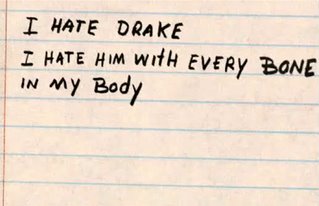 I HATE DRAKE
I HATE HIM WITH EVERY BONE
IN MY BODY